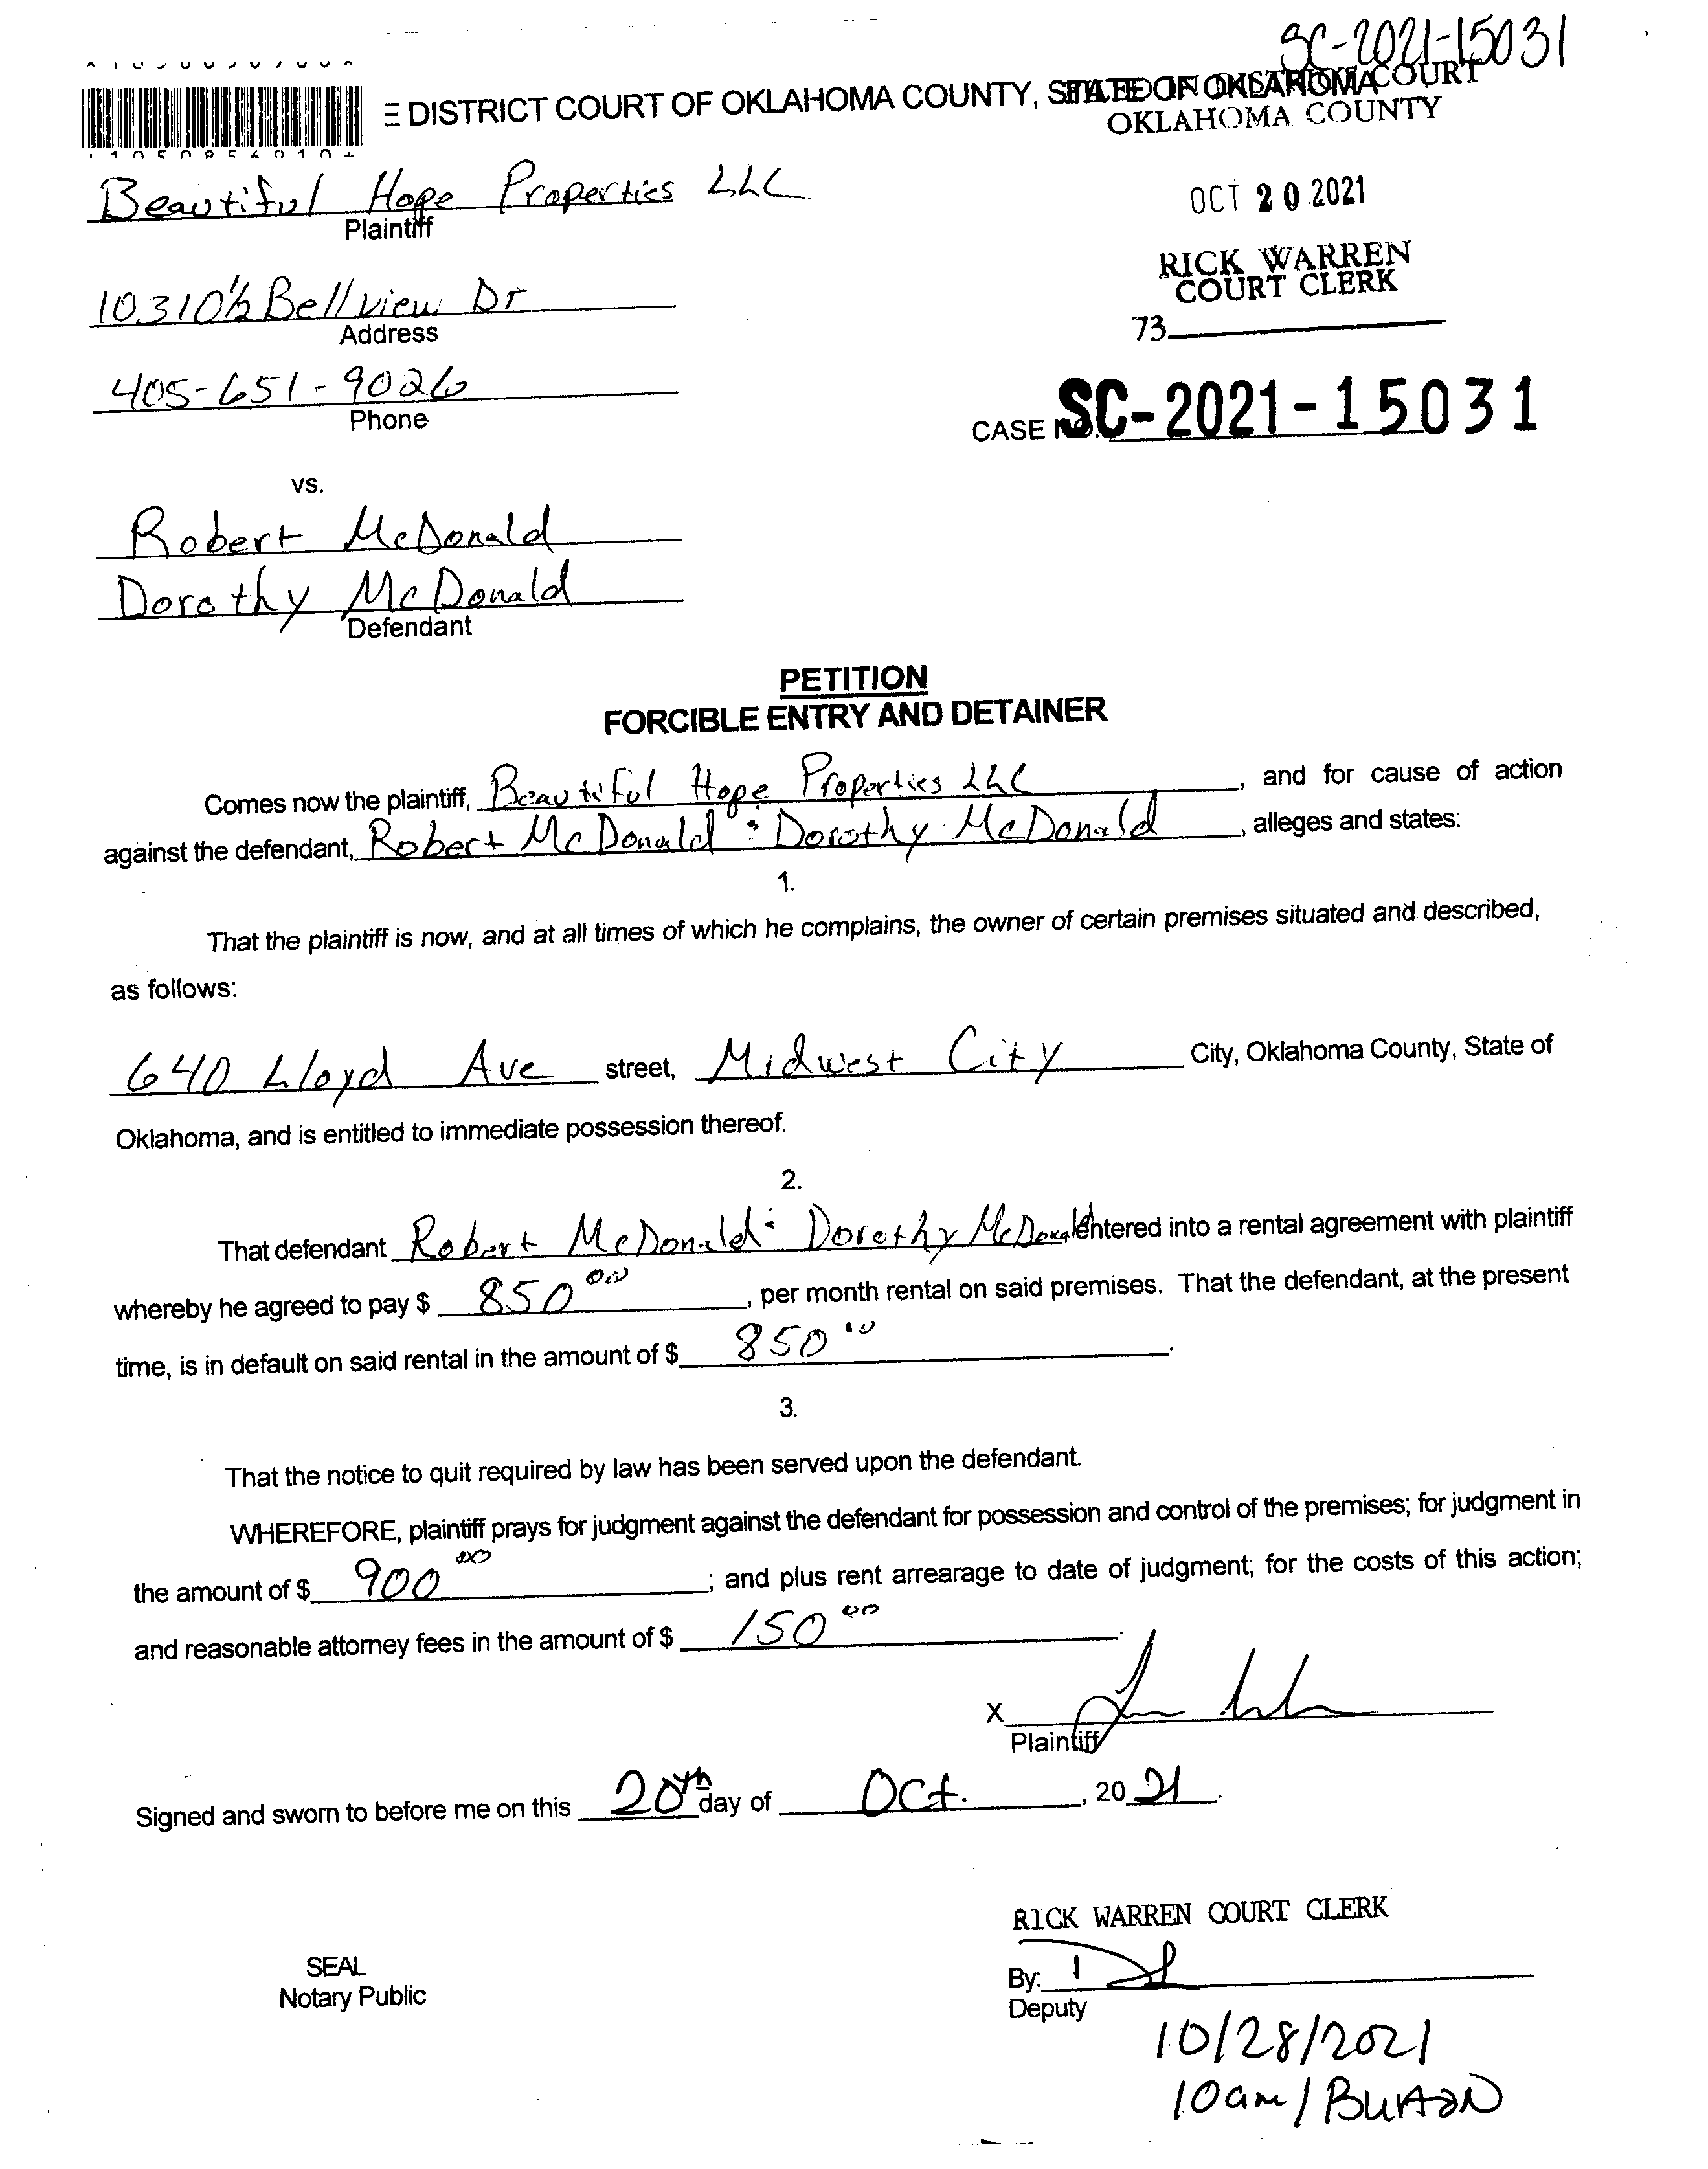 SC-2021-15031
E DISTRICT COURT OF OKLAHOMA COUNTY, STATE OF OKLAHOMA
FILED IN DISTRICT COURT
OKLAHOMA COUNTY
Beautiful Hope Properties LLC
Plaintiff
OCT 20 2021
RICK WARREN
COURT CLERK
73
10310½ Bellview Dr
Address
405-651-9026
Phone
CASE NO. SC-2021-15031
vs.
Robert McDonald
Dorothy McDonald
Defendant
PETITION
FORCIBLE ENTRY AND DETAINER
Comes now the plaintiff, Beautiful Hope Properties LLC, and for cause of action
against the defendant, Robert McDonald : Dorothy McDonald, alleges and states:
1.
That the plaintiff is now, and at all times of which he complains, the owner of certain premises situated and described,
as follows:
640 Lloyd Ave street, Midwest City City, Oklahoma County, State of
Oklahoma, and is entitled to immediate possession thereof.
2.
That defendant Robert McDonald : Dorothy McDonald entered into a rental agreement with plaintiff
whereby he agreed to pay $ 850 00, per month rental on said premises. That the defendant, at the present
time, is in default on said rental in the amount of $ 850 00.
3.
That the notice to quit required by law has been served upon the defendant.
WHEREFORE, plaintiff prays for judgment against the defendant for possession and control of the premises; for judgment in
the amount of $ 900 00; and plus rent arrearage to date of judgment; for the costs of this action;
and reasonable attorney fees in the amount of $ 150 00.
X
Plaintiff
Signed and sworn to before me on this 20th day of Oct., 20 21.
RICK WARREN COURT CLERK
SEAL
Notary Public
By:
Deputy
10/28/2021
10am /